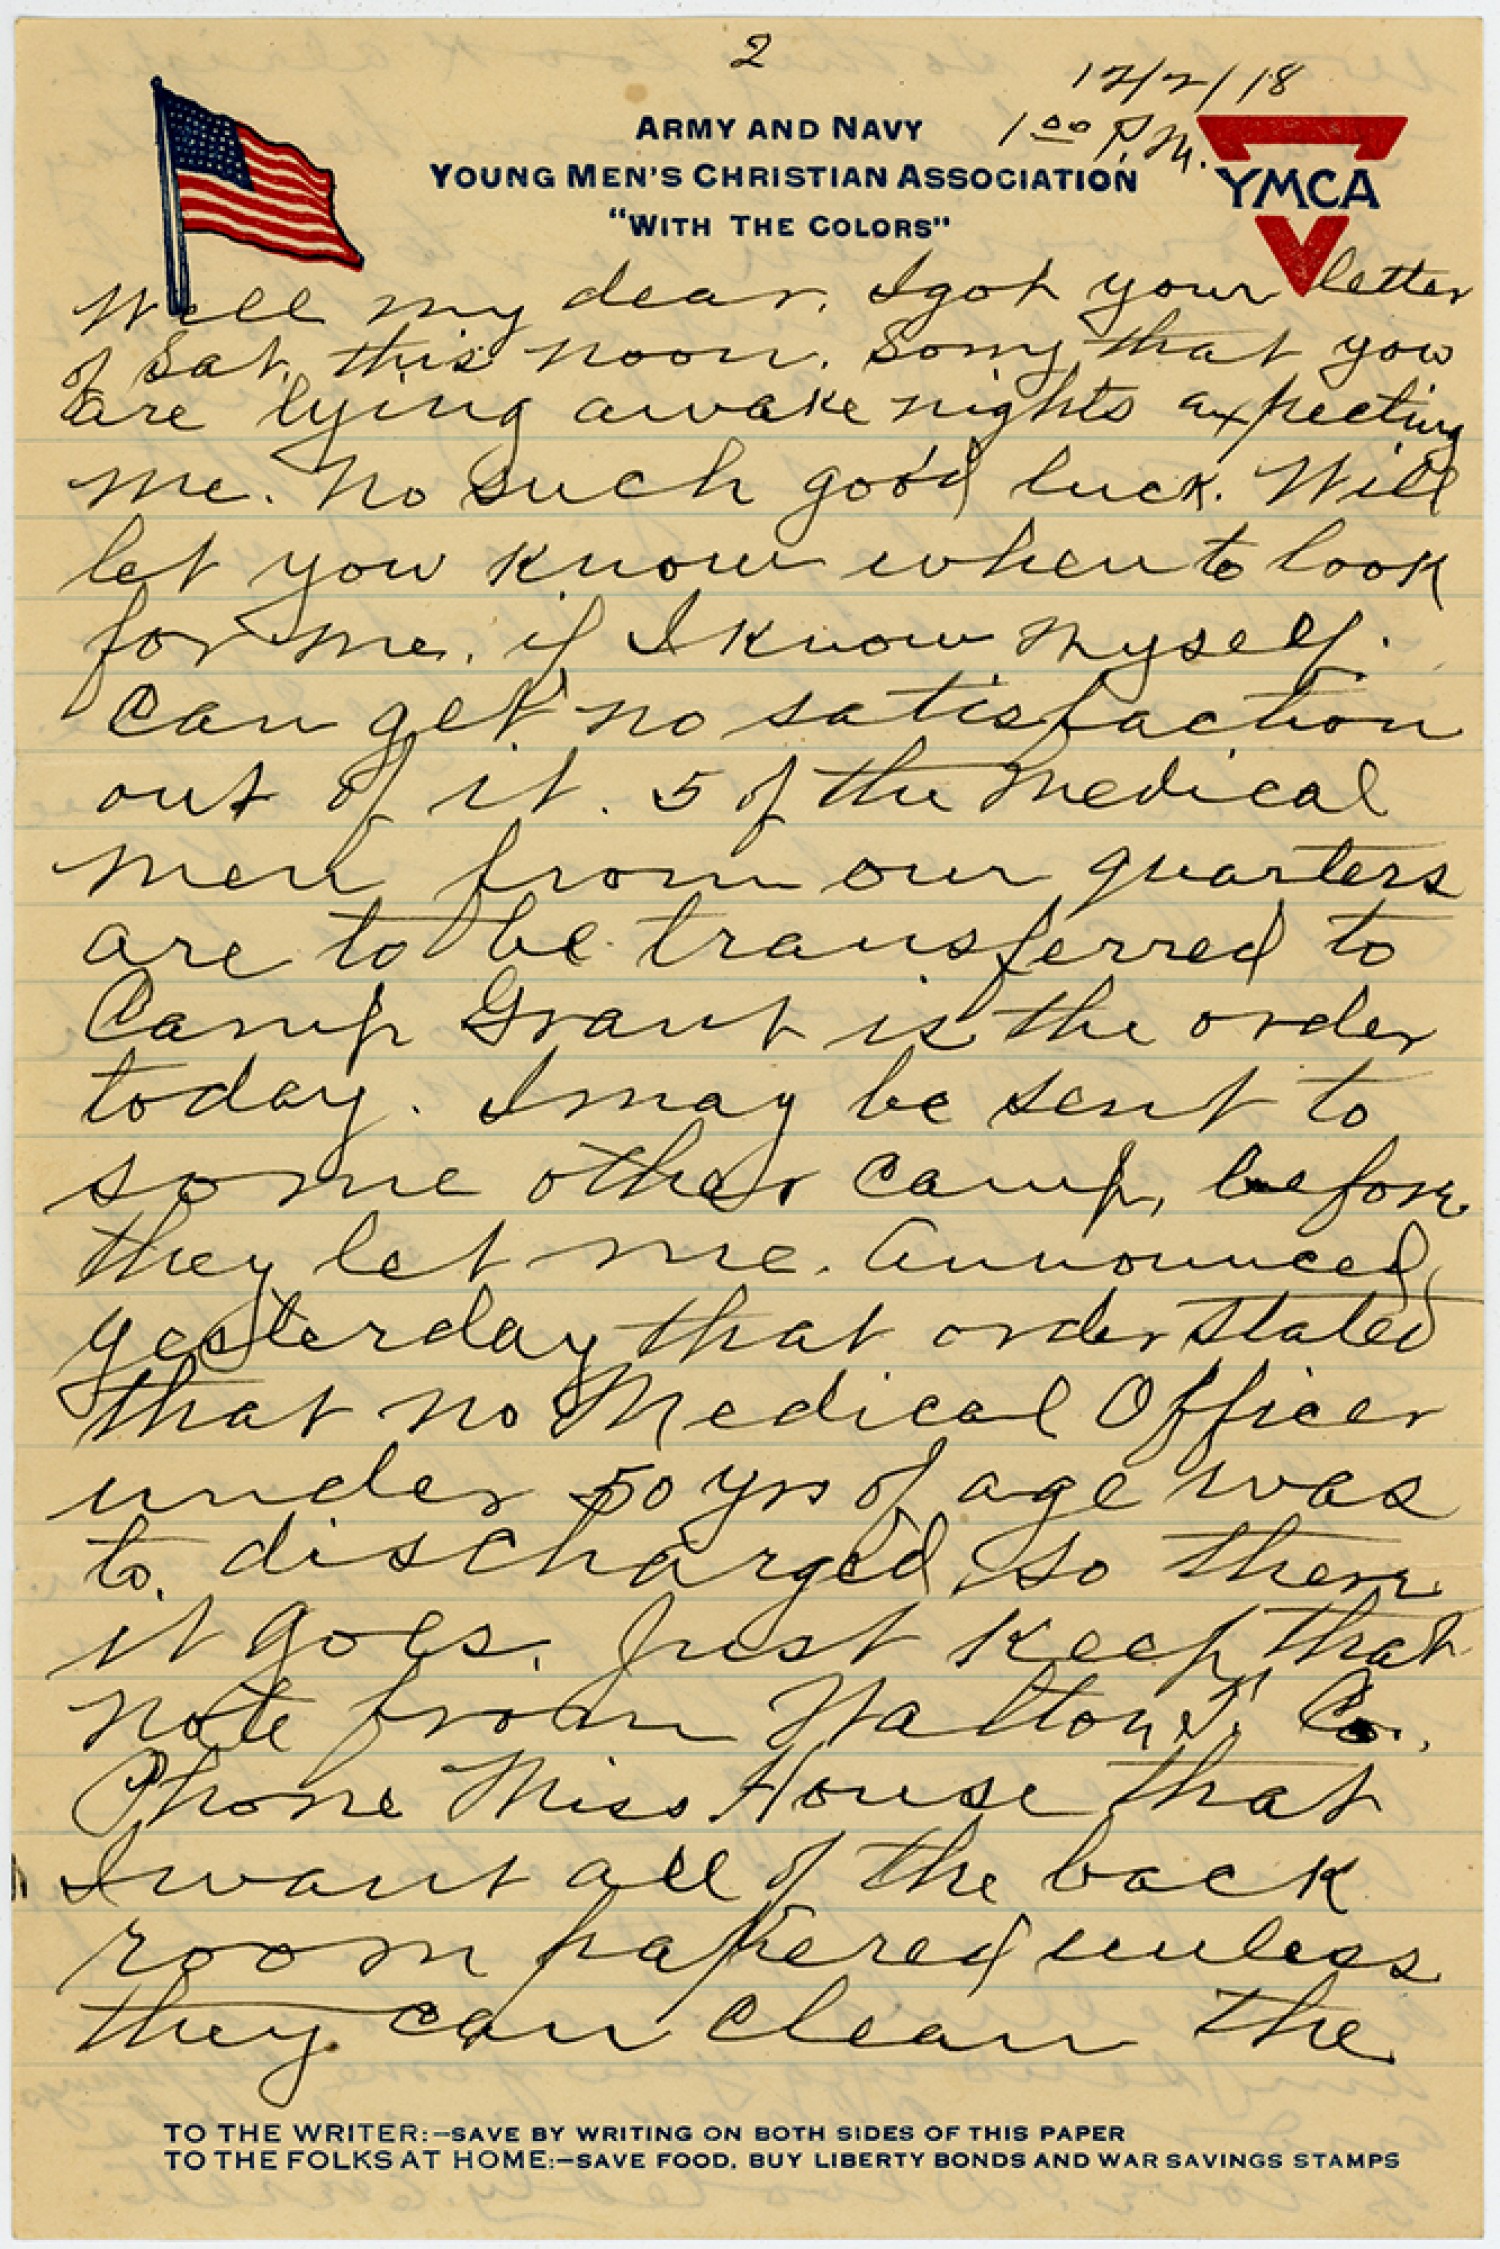 2
12/2/18
1 00 P.M.
ARMY AND NAVY
YOUNG MEN'S CHRISTIAN ASSOCIATION
"WITH THE COLORS"
YMCA
Well my dear. I got your letter
of Sat. this noon. Sorry that you
are lying awake nights expecting
me. No such good luck. Will
let you know when to look
for me. if I know myself.
Can get no satisfaction
out of it. 5 of the Medical
men from our quarters
are to be transferred to
Camp Grant is the order
today. I may be sent to
some other camp, before
they let me. Announced
yesterday that order stated
that no Medical Officer
under 50 yrs of age was
to discharged, so there
it goes. Just keep that
note from Walton Co.
Phone Miss House that
I want all of the back
room papered unless
they can clean the
TO THE WRITER:—SAVE BY WRITING ON BOTH SIDES OF THIS PAPER
TO THE FOLKS AT HOME:—SAVE FOOD, BUY LIBERTY BONDS AND WAR SAVINGS STAMPS